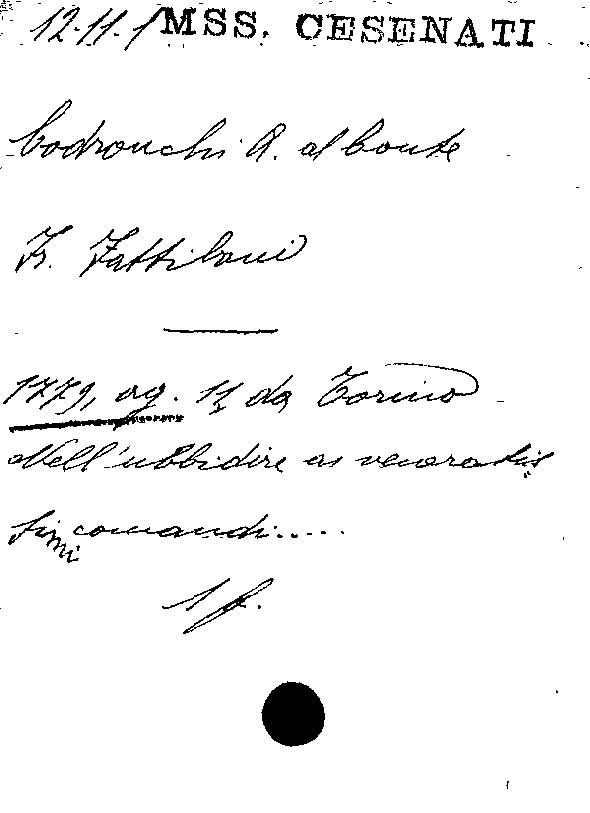 12.11.1 MSS. CESENATI
Codronchi A. al Conte
Fr. Fattiboni
1779, ag. 11 da Torino
Nell'ubbidire ai veneratis
simi comandi.....
1 f.